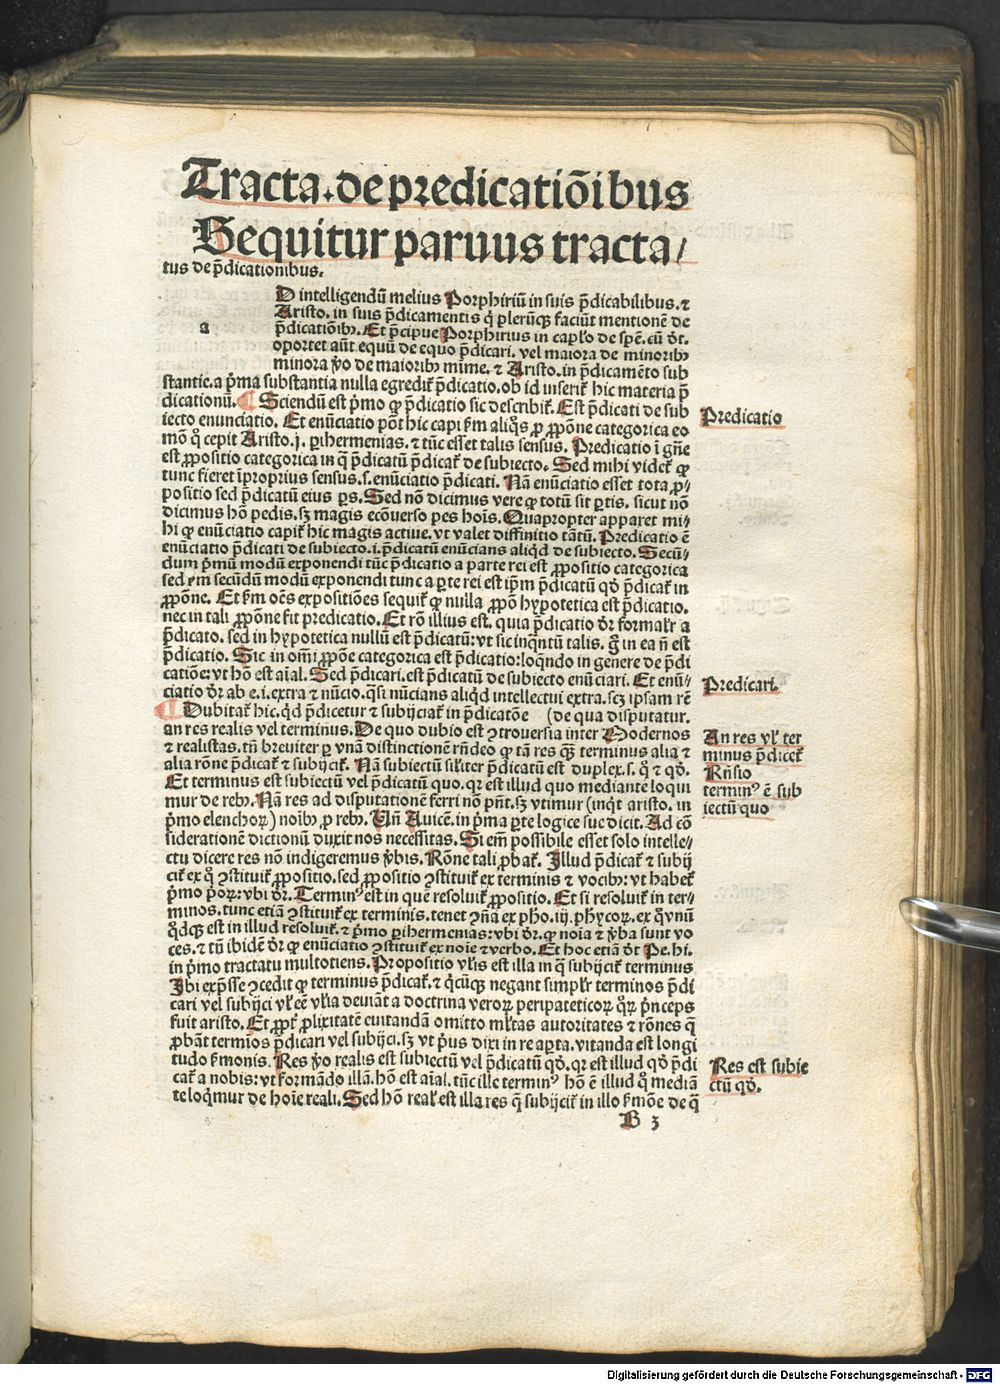 Tracta.de predicatiõibus
Sequitur paruus tracta/
tus de p̃dicationibus.
a
D intelligendũ melius Porphiriũ in suis p̃dicabilibus. ⁊
Aristo. in suis p̃dicamentis q̇ plerũqꝫ faciũt mentionẽ de
p̃dicatiõibꝰ. Et p̃cipue Porphirius in cap̃lo de sp̃e. cũ ď.
oportet aũt equũ de equo p̃dicari. vel maiora de minoribꝰ
minora ꝟo de maioribꝰ mime. ⁊ Aristo. in p̃dicamẽto sub
stantie. a p̃ma substantia nulla egredit̃ p̃dicatio. ob id inserit̃ hic materia p̃
dicationũ. ¶ Sciendũ est p̃mo ꝙ p̃dicatio sic describit̃. Est p̃dicati de sub
iecto enunciatio. Et enũciatio põt hic capi ẜm aliq̃s ꝓ ꝓpõne categorica eo
mõ q̃ cepit Aristo. j. ꝑihermenias. ⁊ tũc esset talis sensus. Predicatio ĩ gñe
est ꝓpositio categorica in q̃ p̃dicatũ p̃dicat̃ de subiecto. Sed mihi videt̃ ꝙ
tunc fieret ĩproprius sensus. s. enũciatio p̃dicati. Nã enũciatio esset tota ꝓ/
positio sed p̃dicatũ eius ꝑs. Sed nõ dicimus vere ꝙ totũ sit ꝑtis. sicut nõ
dicimus hõ pedis. sꝫ magis ecõuerso pes hoĩs. Quapropter apparet mi/
hi ꝙ enũciatio capit̃ hic magis actiue. vt valet diffinitio tãtũ. Predicatio ẽ
enũciatio p̃dicati de subiecto. i. p̃dicatũ enũcians aliq̃d de subiecto. Secũ/
dum p̃mũ modũ exponendi tũc p̃dicatio a parte rei est ꝓpositio categorica
sed ẜm secũdũ modũ exponendi tunc a ꝑte rei est ip̃m p̃dicatũ qď p̃dicat̃ in
ꝓpõne. Et ẜm oẽs expositiões sequit̃ ꝙ nulla ꝓpõ hypotetica est p̃dicatio.
nec in tali ꝓpõne fit predicatio. Et rõ illius est. quia p̃dicatio dr̃ formalr̃ a
p̃dicato. sed in hypotetica nullũ est p̃dicatũ: vt sic inq̃ntũ talis. g̃ in ea ñ est
p̃dicatio. Sic in om̃i ꝓpõe categorica est p̃dicatio: loq̃ndo in genere de p̃di
catiõe: vt hõ est aĩal. Sed p̃dicari. est p̃dicatũ de subiecto enũciari. Et enũ/
ciatio dr̃ ab e. i. extra ⁊ nũcio. q̃si nũcians aliq̃d intellectui extra. sꝫ ipsam rẽ
¶ Dubitat̃ hic. q̃d p̃dicetur ⁊ subijciat̃ in p̃dicatõe (de qua disputatur.
an res realis vel terminus. De quo dubio est ꝯtrouersia inter Modernos
⁊ realistas. tñ breuiter ꝑ vnã distinctionẽ rñdeo ꝙ tã res q̃ꝫ terminus alia ⁊
alia rõne p̃dicat̃ ⁊ subijcit̃. Nã subiectũ sil̃iter p̃dicatũ est duplex. s. q̊ ⁊ qď.
Et terminus est subiectũ vel p̃dicatũ quo. qr̃ est illud quo mediante loqui
mur de rebꝰ. Nã res ad disputationẽ ferri nõ pñt. sꝫ vtimur (inq̃t aristo. in
p̃mo elenchoꝝ) noĩbꝰ ꝓ rebꝰ. Vñ Auicẽ. in p̃ma ꝑte logice sue dicit. Ad cõ
siderationẽ dictionũ duxit nos necessitas. Si em̃ possibile esset solo intelle/
ctu dicere res nõ indigeremus ꝟbis. Rõne tali ꝓbat̃. Illud p̃dicat̃ ⁊ subij
cit̃ ex q̊ ꝯstituit̃ ꝓpositio. sed ꝓpositio ꝯstituit̃ ex terminis ⁊ vocibꝰ: vt habet̃
p̃mo p̃oꝝ: vbi dr̃. Terminꝰ est in quẽ resoluit̃ ꝓpositio. Et si resoluit̃ in ter/
minos. tunc etiã ꝯstituit̃ ex terminis. tenet ꝯña ex pho. iij. phycoꝝ. ex q̊ vnũ
q̊dqꝫ est in illud resoluit̃. ⁊ p̃mo ꝑihermenias: vbi dr̃. ꝙ noĩa ⁊ ꝟba sunt vo
ces. ⁊ tñ ibidẽ dr̃ ꝙ enũciatio ꝯstituit̃ ex noĩe ⁊ verbo. Et hoc etiã ď Pe. hi.
in p̃mo tractatu multotiens. Propositio vl̃is est illa in q̃ subijcit̃ terminus
Ibi exp̃sse ꝯcedit ꝙ terminus p̃dicat̃. ⁊ q̃cũqꝫ negant simpl̃r terminos p̃di
cari vel subijci vl̃ eẽ vl̃ia deuiãt a doctrina veroꝝ peripateticoꝝ q̊ꝝ p̃nceps
fuit aristo. Et ꝓpt̃ ꝓlixitatẽ euitandã omitto ml̃tas autoritates ⁊ rõnes q̃
ꝓbãt termĩos p̃dicari vel subijci. sꝫ vt p̃us dixi in re aꝑta. vitanda est longi
tudo ẜmonis. Res ꝟo realis est subiectũ vel p̃dicatũ qď. qr̃ est illud qď p̃di
cat̃ a nobis: vt formãdo illã. hõ est aĩal. tũc ille terminꝰ hõ ẽ illud q̊ mediã
te loq̃mur de hoĩe reali. Sed hõ real̃ est illa res q̃ subijcit̃ in illo ẜmõe de q̃
B 3
Predicatio
Predicari.
An res vl̃ ter
minus p̃dicet̃
Rñsio
terminꝰ ẽ sub
iectũ quo
Res est subie
ctũ qď.
Digitalisierung gefördert durch die Deutsche Forschungsgemeinschaft - DFG